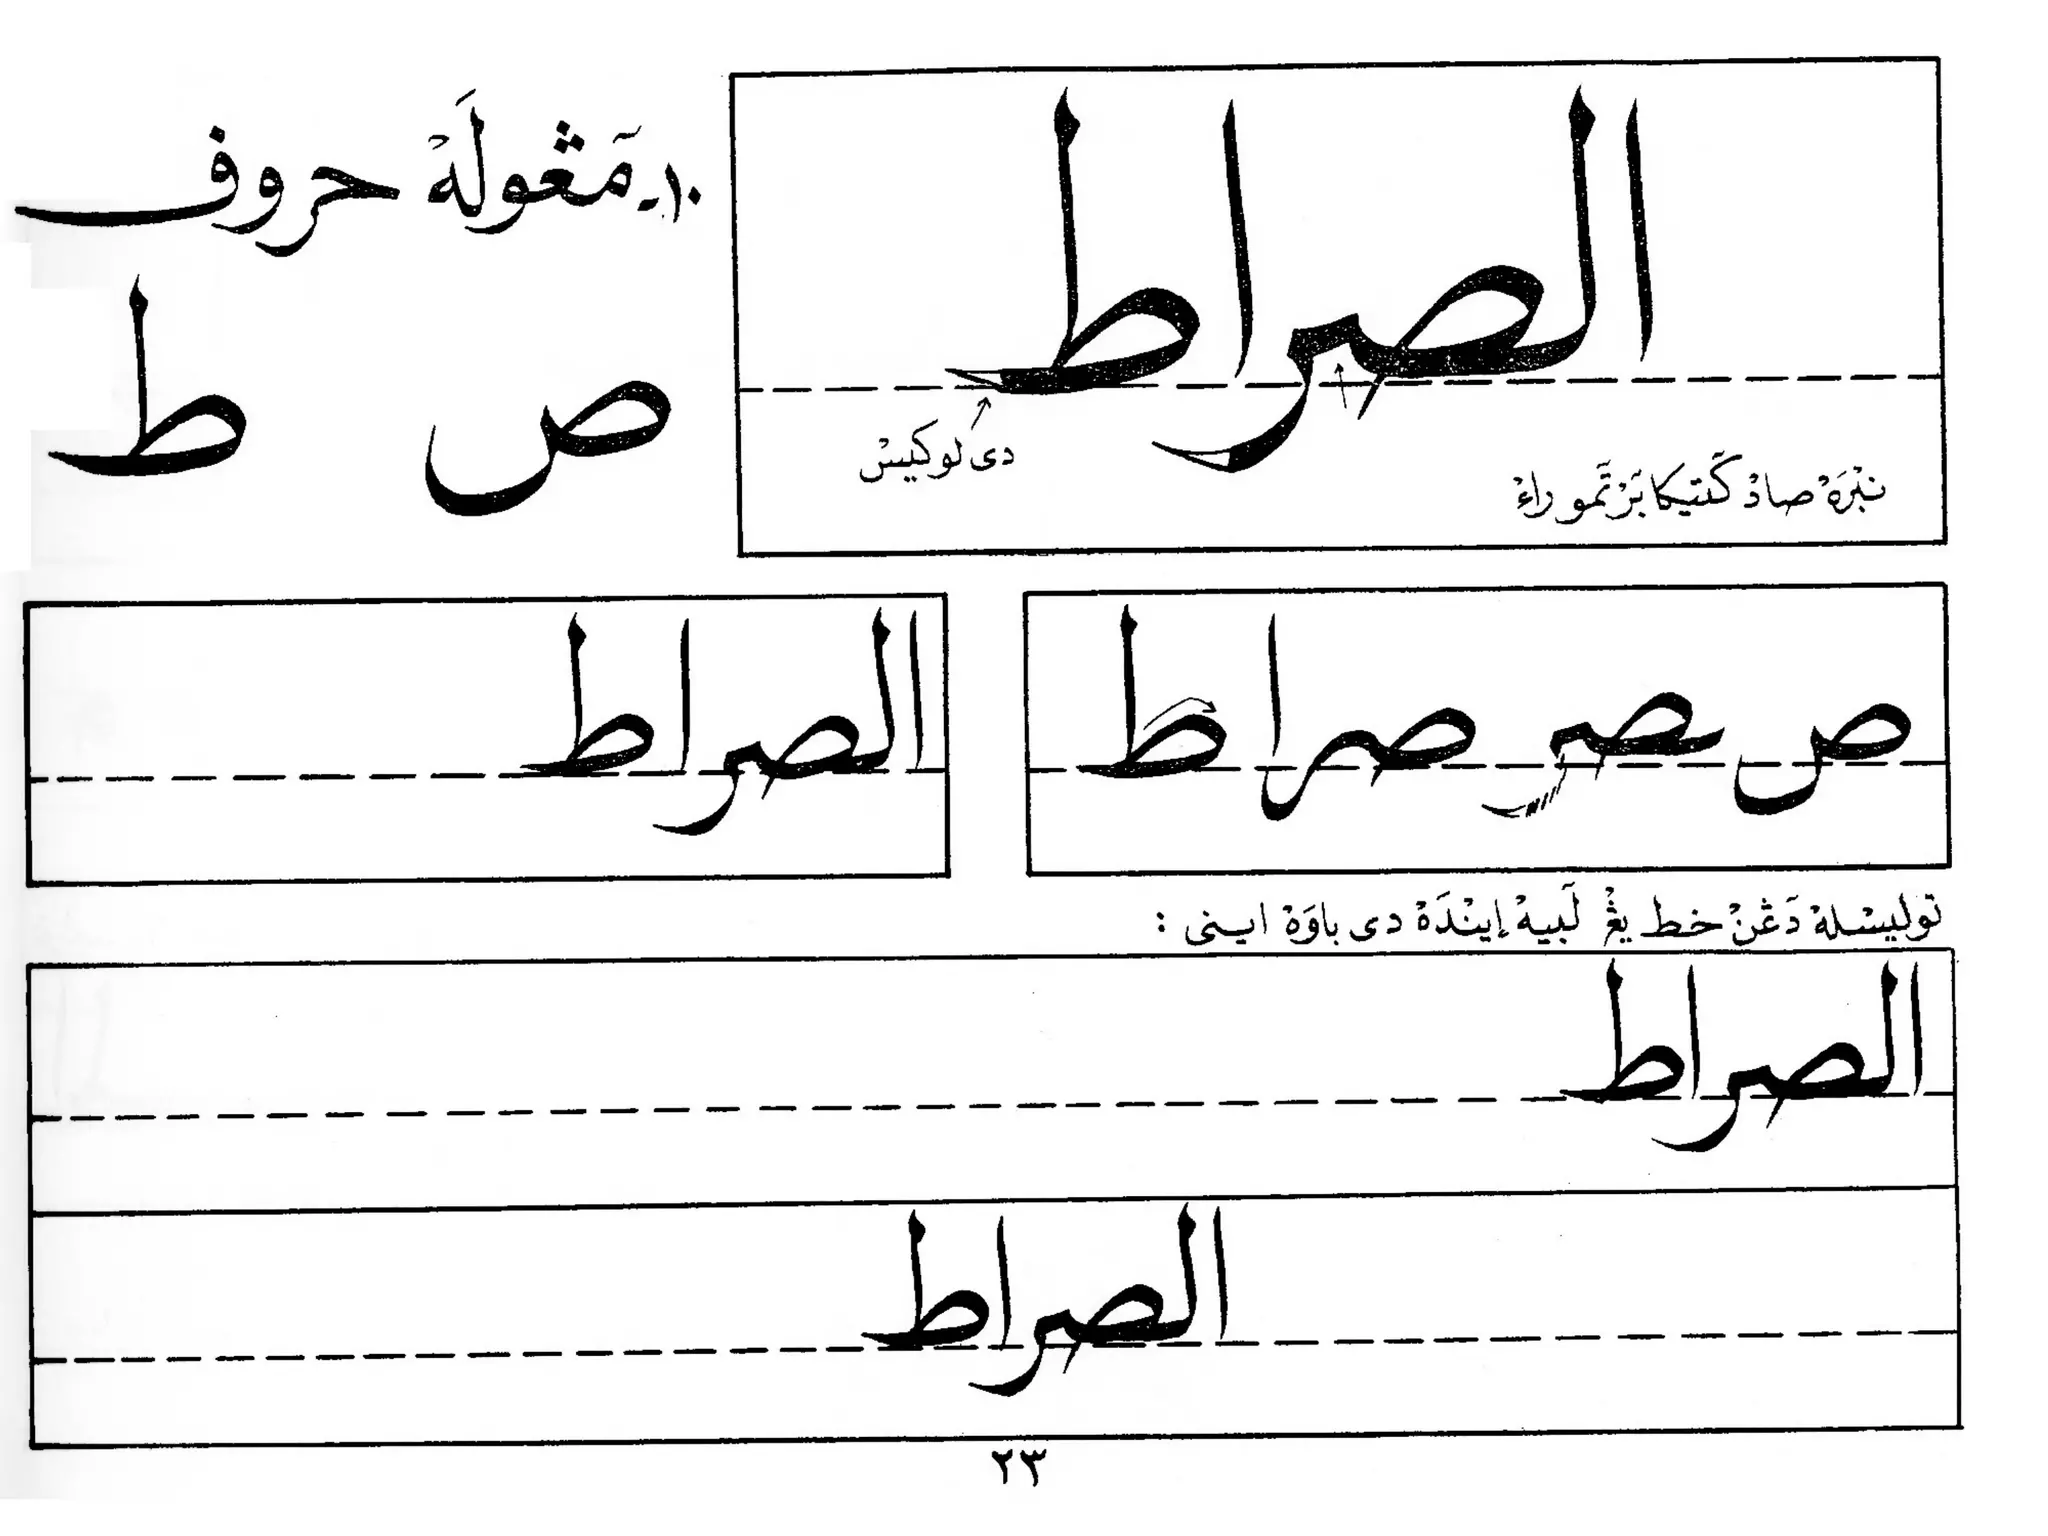 ١٠- مَڠولَهْ حروف
ص ط
الصراط
دى لوكيسْ
نبْرَهْ صادْ كَتيكا بَرْتَمو راءْ
ص ىصر صرا ط
الصراط
توليسْلهْ دَڠنْ خط يڠْ لَبيهْ إينْدَهْ دى باوَهْ اينى :
الصراط
الصراط
٢٣